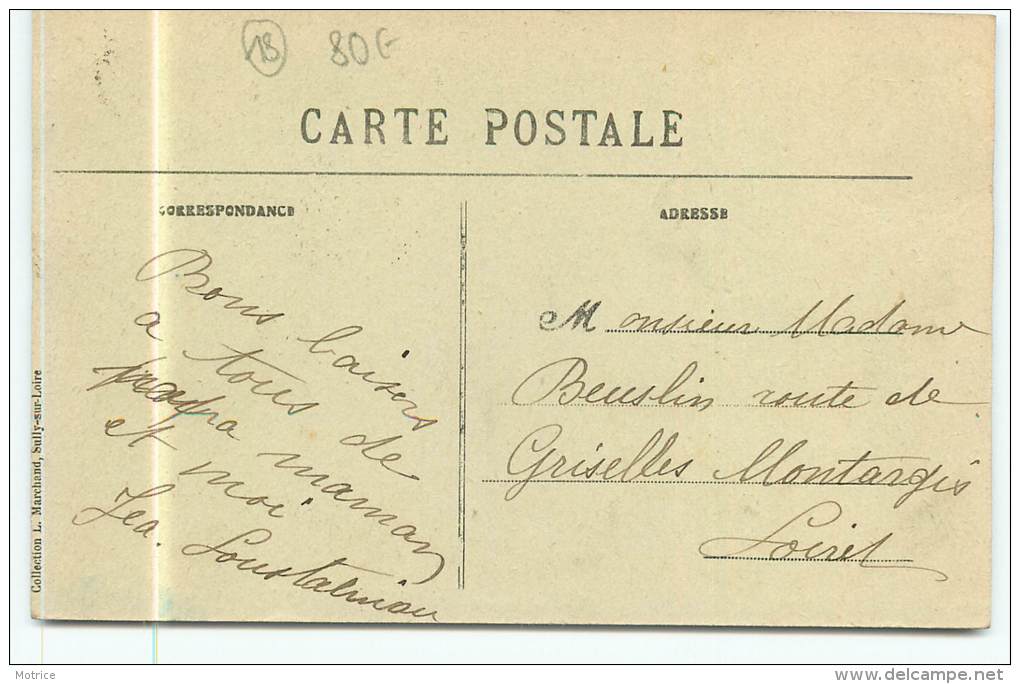 18 80€
CARTE POSTALE
CORRESPONDANCE
ADRESSE
Bons baisers
a tous de
papa maman
et moi
Jea. Loustalniau
Monsieur Madame
Beuslin route de
Griselles Montargis
Loiret
Collection L. Marchand, Sully-sur-Loire
Motrice
delcampe.net